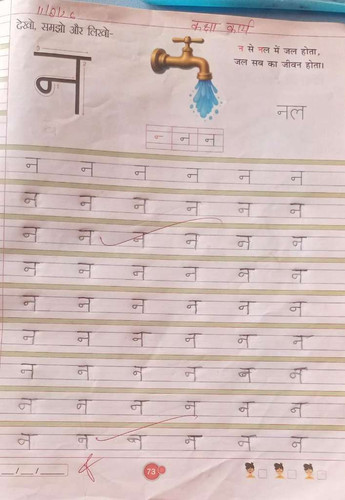 कक्षा कार्य
देखो, समझो और लिखो-
न से नल में जल होता,
जल सब का जीवन होता।
न
नल
न न न
न न न न न न
न न न न न न
न न न न न न
न न न न न न
न न न न न न
न न न न न न
न न न न न न
न न न न न न
न न न न न न
73